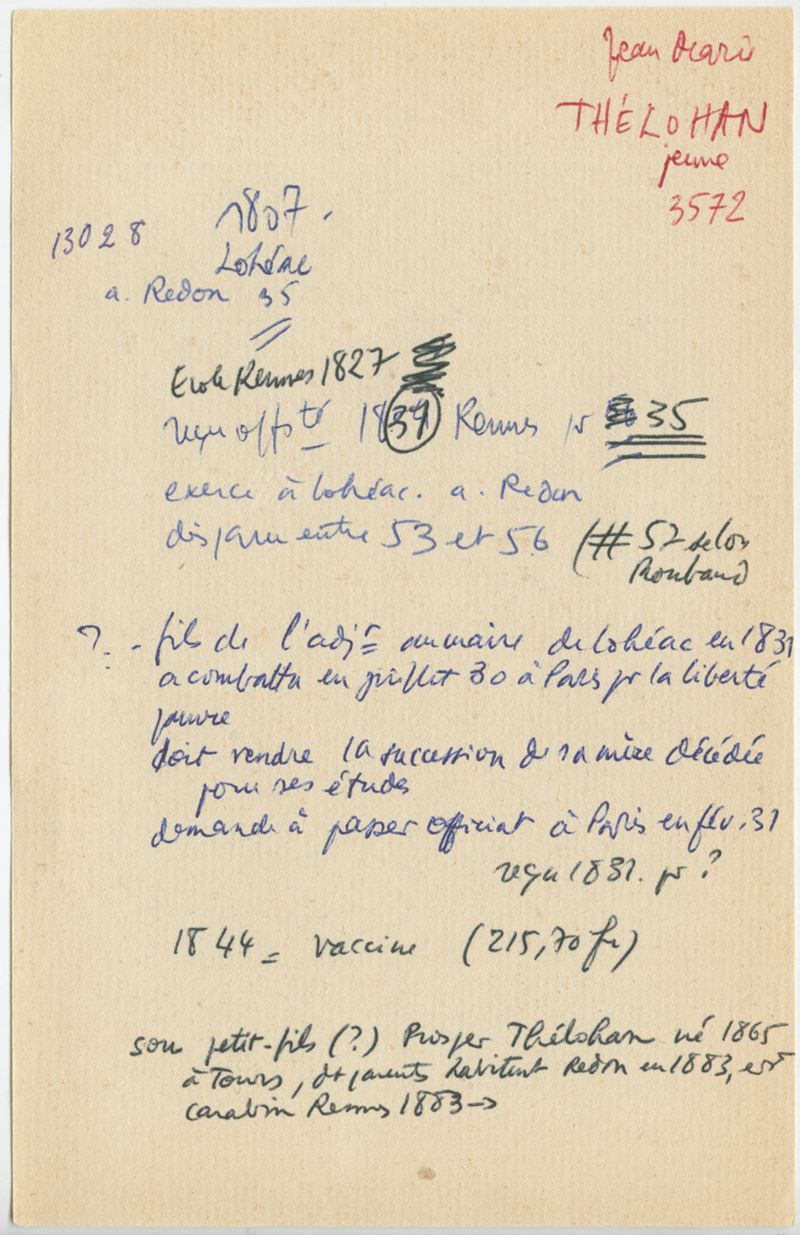 Jean Marie
THÉLOHAN
jeune
3572
13028
1807.
Lohéac
a. Redon 35
Ecole Rennes 1827
reçu offté 1834 Rennes pr 35
exerce à Lohéac. a. Redon
disparu entre 53 et 56 (# 57 selon
Roubaud
? - fils de l'adjt au maire de Lohéac en 1831
a combattu en juillet 30 à Paris pr la liberté
pauvre
doit vendre la succession de sa mère décédée
pour ses études
demande à passer officiat à Paris en fév. 31
reçu 1831. pr ?
1844 = vaccine (215,70 fr)
son petit-fils (?) Prosper Thélohan né 1865
à Tours, dt parents habitent Redon en 1883, est
carabin Rennes 1883 →